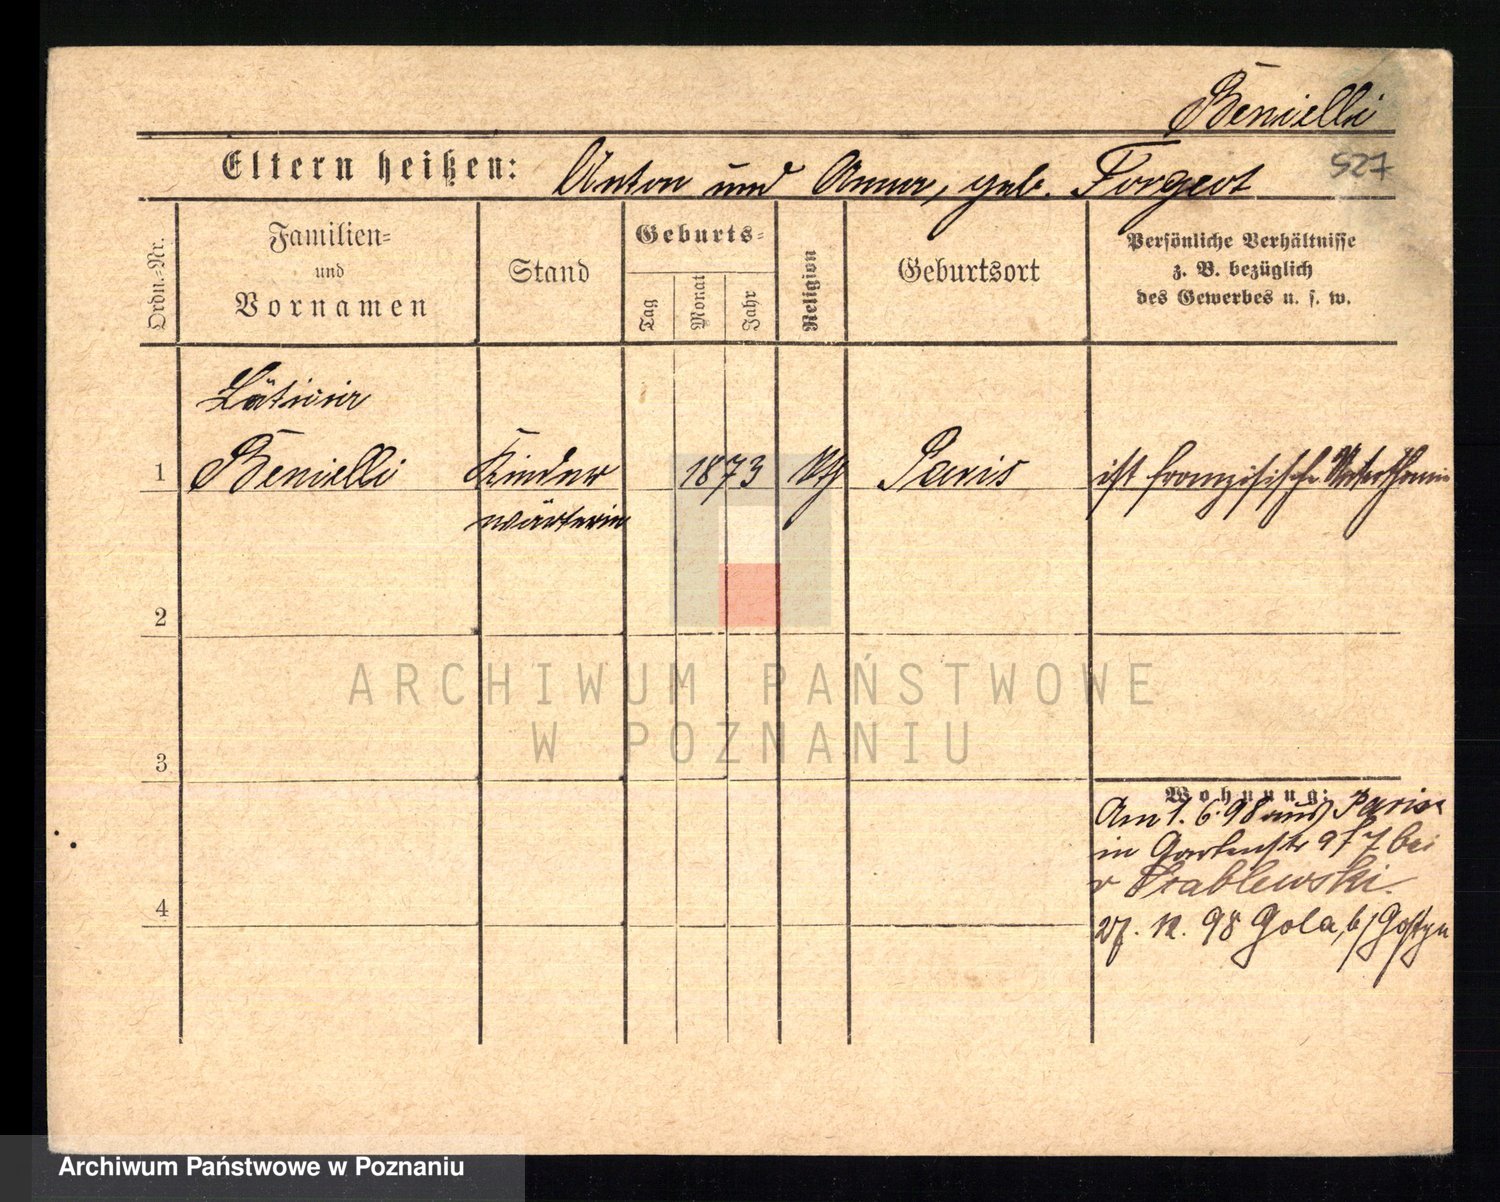 Benielli
Eltern heißen: Anton und Anna, geb. Forgeot
527
Ordn.-Nr.
Familien-
und
Vornamen
Stand
Geburts-
Tag
Monat
Jahr
Religion
Geburtsort
Persönliche Verhältnisse
z. B. bezüglich
des Gewerbes u. s. w.
Lätizia
1 Benielli Kinder 1873 kth Paris ist französische Unterthanin
wärterin
2
ARCHIWUM PAŃSTWOWE
W POZNANIU
3
Wohnung:
Am 1. 6. 98 aus Paris
in Gartenstr 9 f 7 bei
4
27. 12. 98 Gola, b/Gostyn
Archiwum Państwowe w Poznaniu